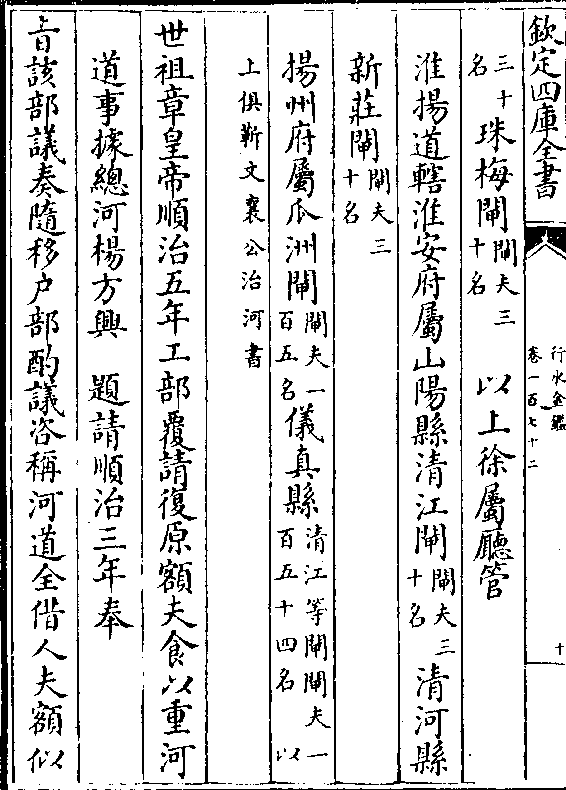 欽定四庫全書
行水金鑑
卷一百七十二
十
三十
名
珠梅閘
閘夫三
十名
以上徐屬廳管
淮揚道轄淮安府屬山陽縣清江閘
閘夫三
十名
清河縣
新莊閘
閘夫三
十名
揚州府屬瓜洲閘
閘夫一
百五名
儀真縣
清江等閘閘夫一
百五十四名 以
上俱靳文襄公治河書
世祖章皇帝順治五年工部覆請復原額夫食以重河
道事據總河楊方興 題請順治三年奉
㫖該部議奏隨移户部酌議咨稱河道全借人夫額似